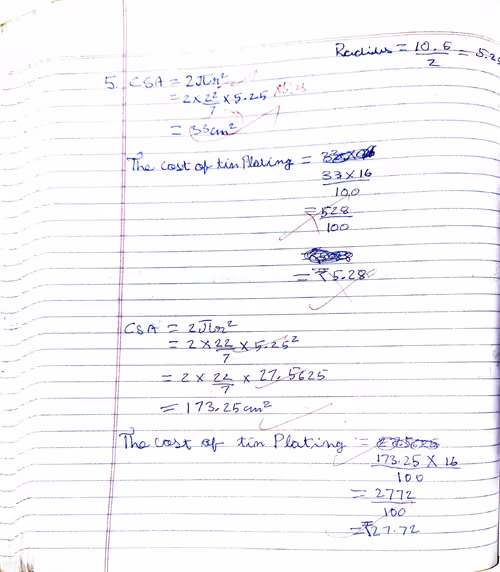 Radius = 10.5/2 = 5.25
5. CSA = 2πr²
= 2 × 22/7 × 5.25 × 5.25
= 33cm²
The cost of tin Plating =
33 × 16/100
= 528/100
= ₹5.28
CSA = 2πr²
= 2 × 22/7 × 5.25²
= 2 × 22/7 × 27.5625
= 173.25cm²
The cost of tin Plating =
173.25 × 16/100
= 2772/100
= ₹27.72